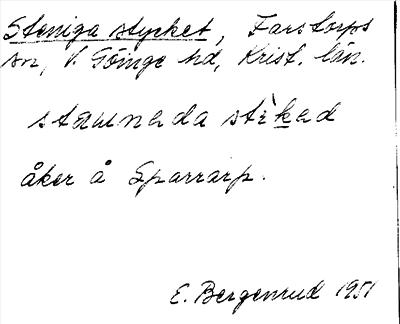 Steniga stycket, Farstorps
sn, V. Göinge hd, Krist. län.
stæmnada stìkad
åker å Sparrarp.
E. Bergenrud 1951